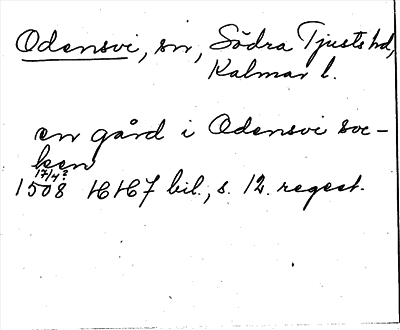 Odensvi, sn, Södra Tjusts hd,
Kalmar l.
en gård i Odensvi soc-
ken
17/4?
1508 HH7 bil., s. 12. regest.